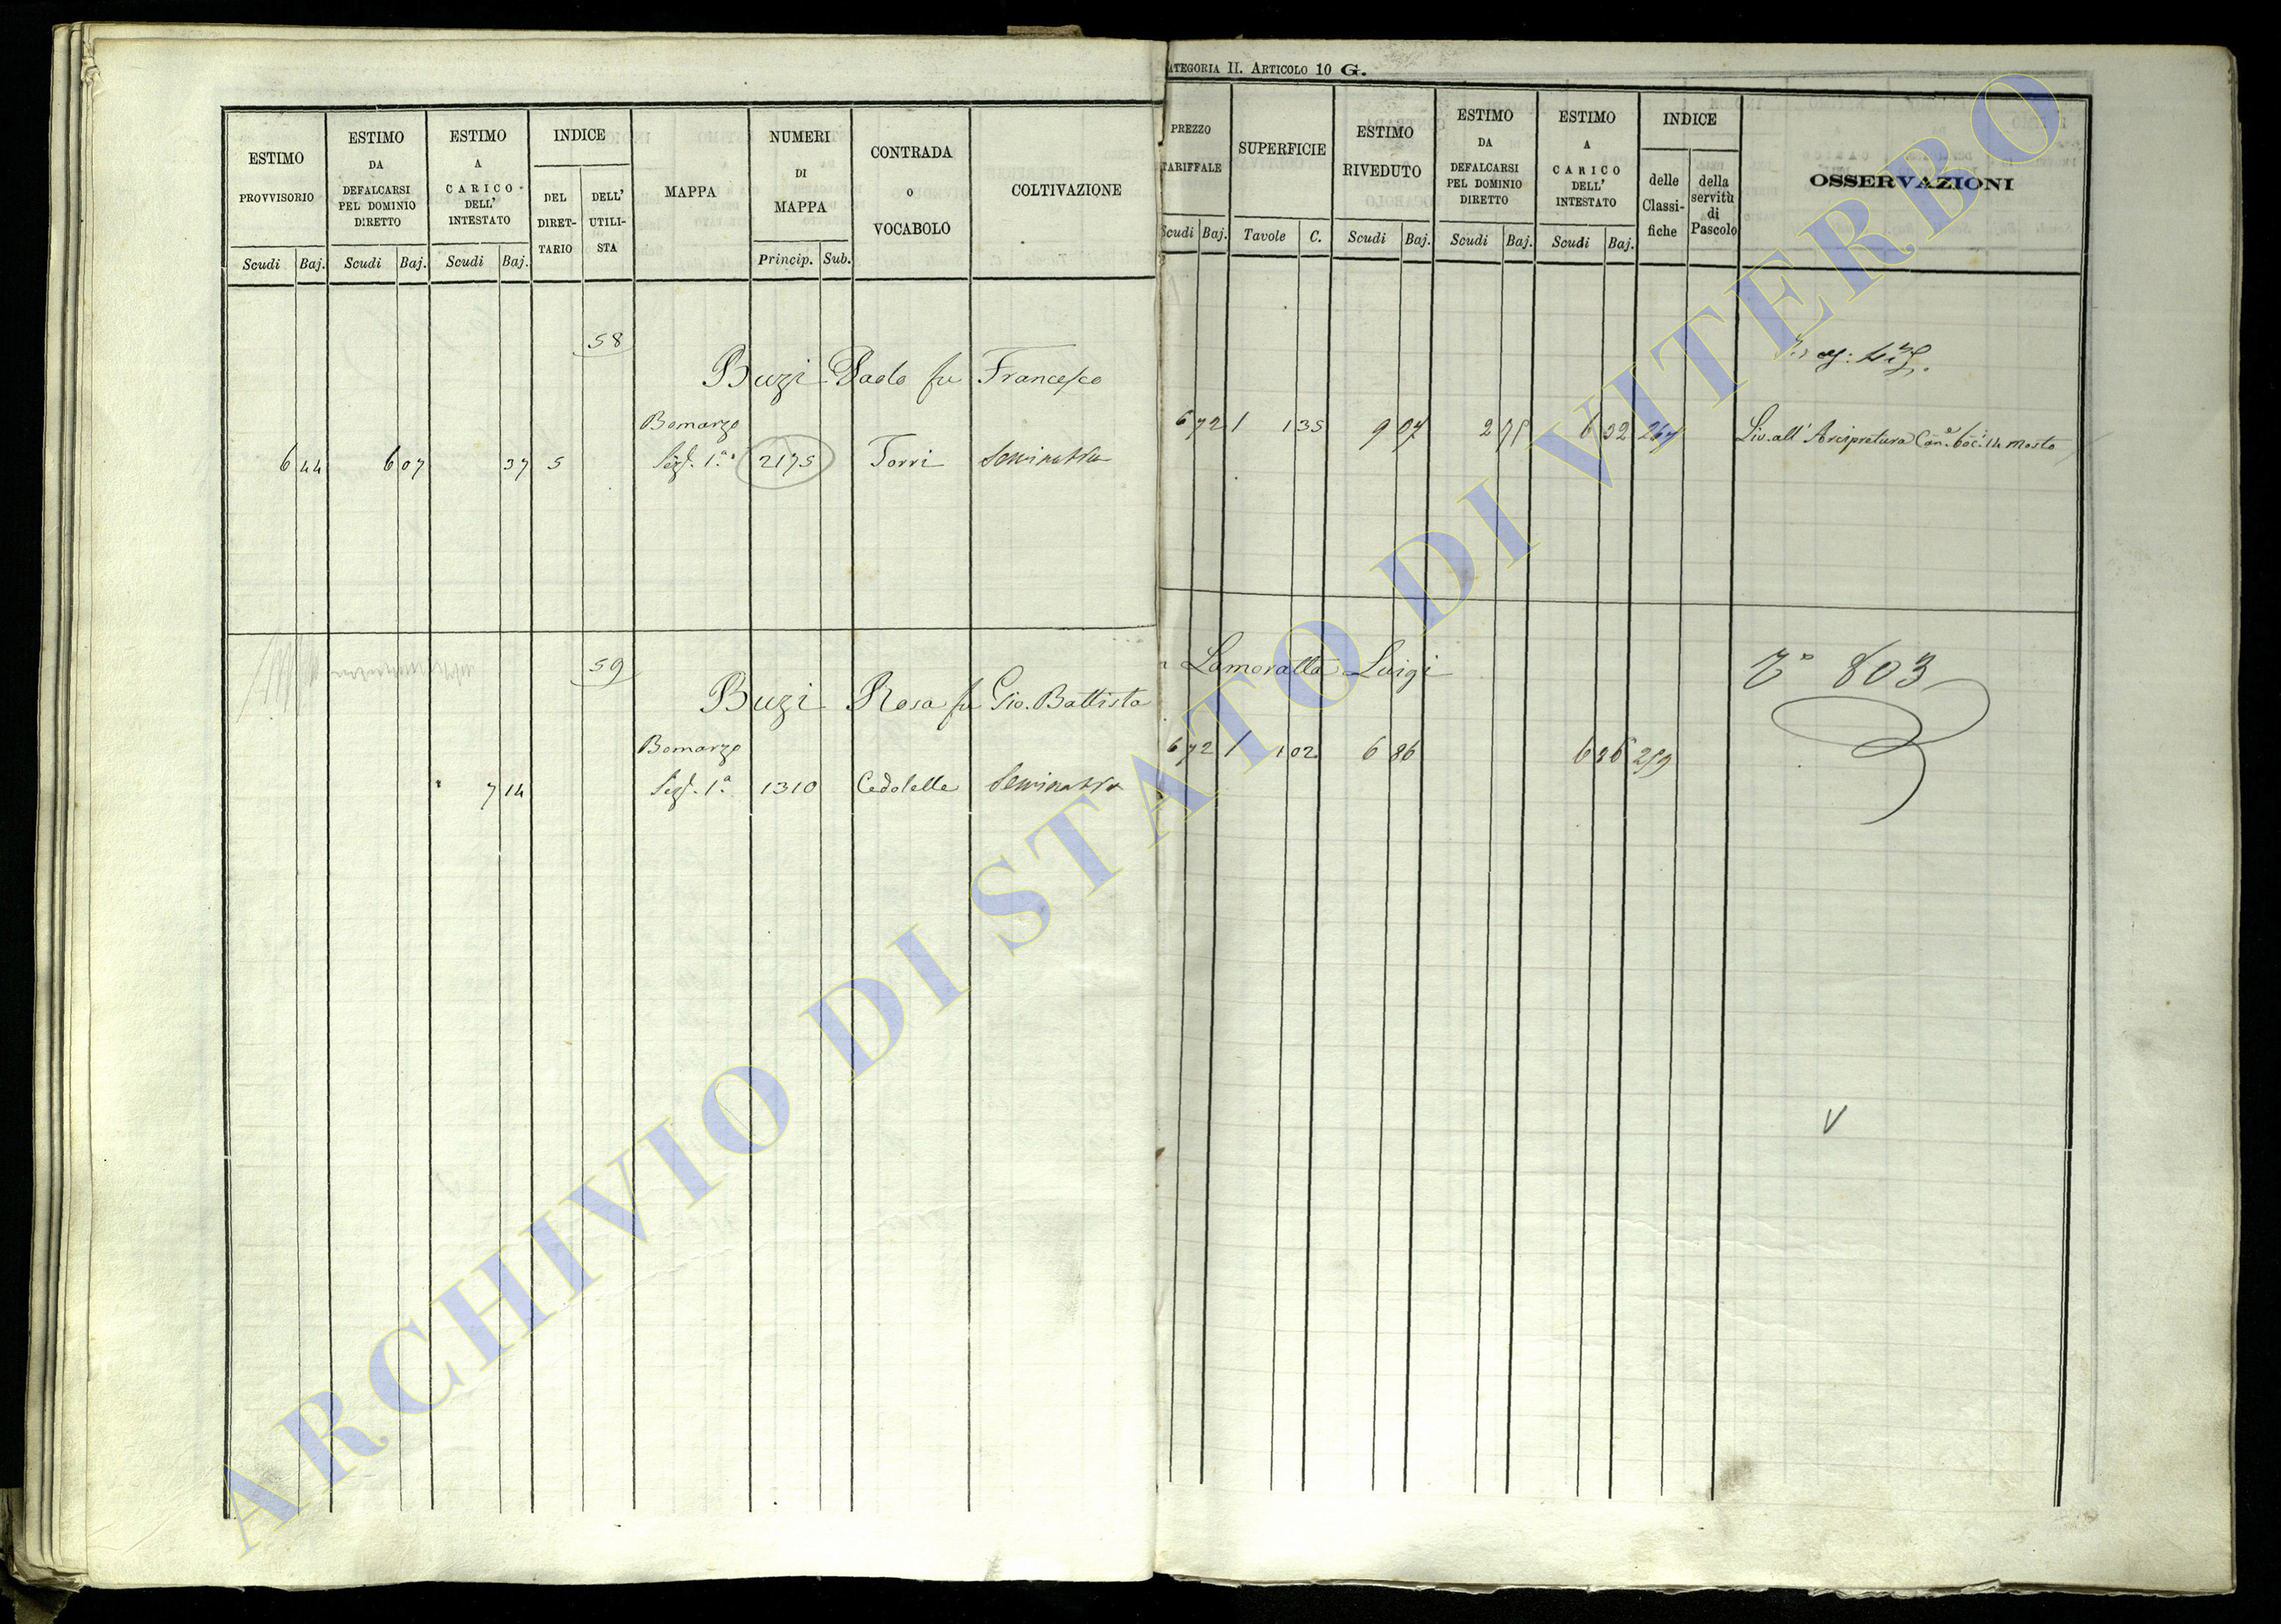 ESTIMO
PROVVISORIO
Scudi Baj.
ESTIMO
DA
DEFALCARSI
PEL DOMINIO
DIRETTO
Scudi Baj.
ESTIMO
A
CARICO
DELL'
INTESTATO
Scudi Baj.
INDICE
DEL
DIRET-
TARIO
DELL'
UTILI-
STA
MAPPA
NUMERI
DI
MAPPA
Princip. Sub.
CONTRADA
O
VOCABOLO
COLTIVAZIONE
58
Buzi Paolo fu Francesco
Bomarzo
6 44 6 07 37 5 Sez. 1.ª 2175 Torri
59
Buzi Rosa fu Gio. Battista
Bomarzo
7 14 Sez. 1.ª 1310 Cedolelle
ATEGORIA II. ARTICOLO 10 G.
PREZZO
TARIFFALE
Scudi Baj.
SUPERFICIE
Tavole C.
ESTIMO
RIVEDUTO
Scudi Baj.
ESTIMO
DA
DEFALCARSI
PEL DOMINIO
DIRETTO
Scudi Baj.
ESTIMO
A
CARICO
DELL'
INTESTATO
Scudi Baj.
INDICE
delle
Classi-
fiche
della
servitù
di
Pascolo
OSSERVAZIONI
6 72 1 1 35 9 07 6 32 267 Liv. all' Arcipretura Can.e boc.i 14 mosto
Lamoratta Luigi
803
6 72 1 1 02 6 86 259
V
ARCHIVIO DI STATO DI VITERBO